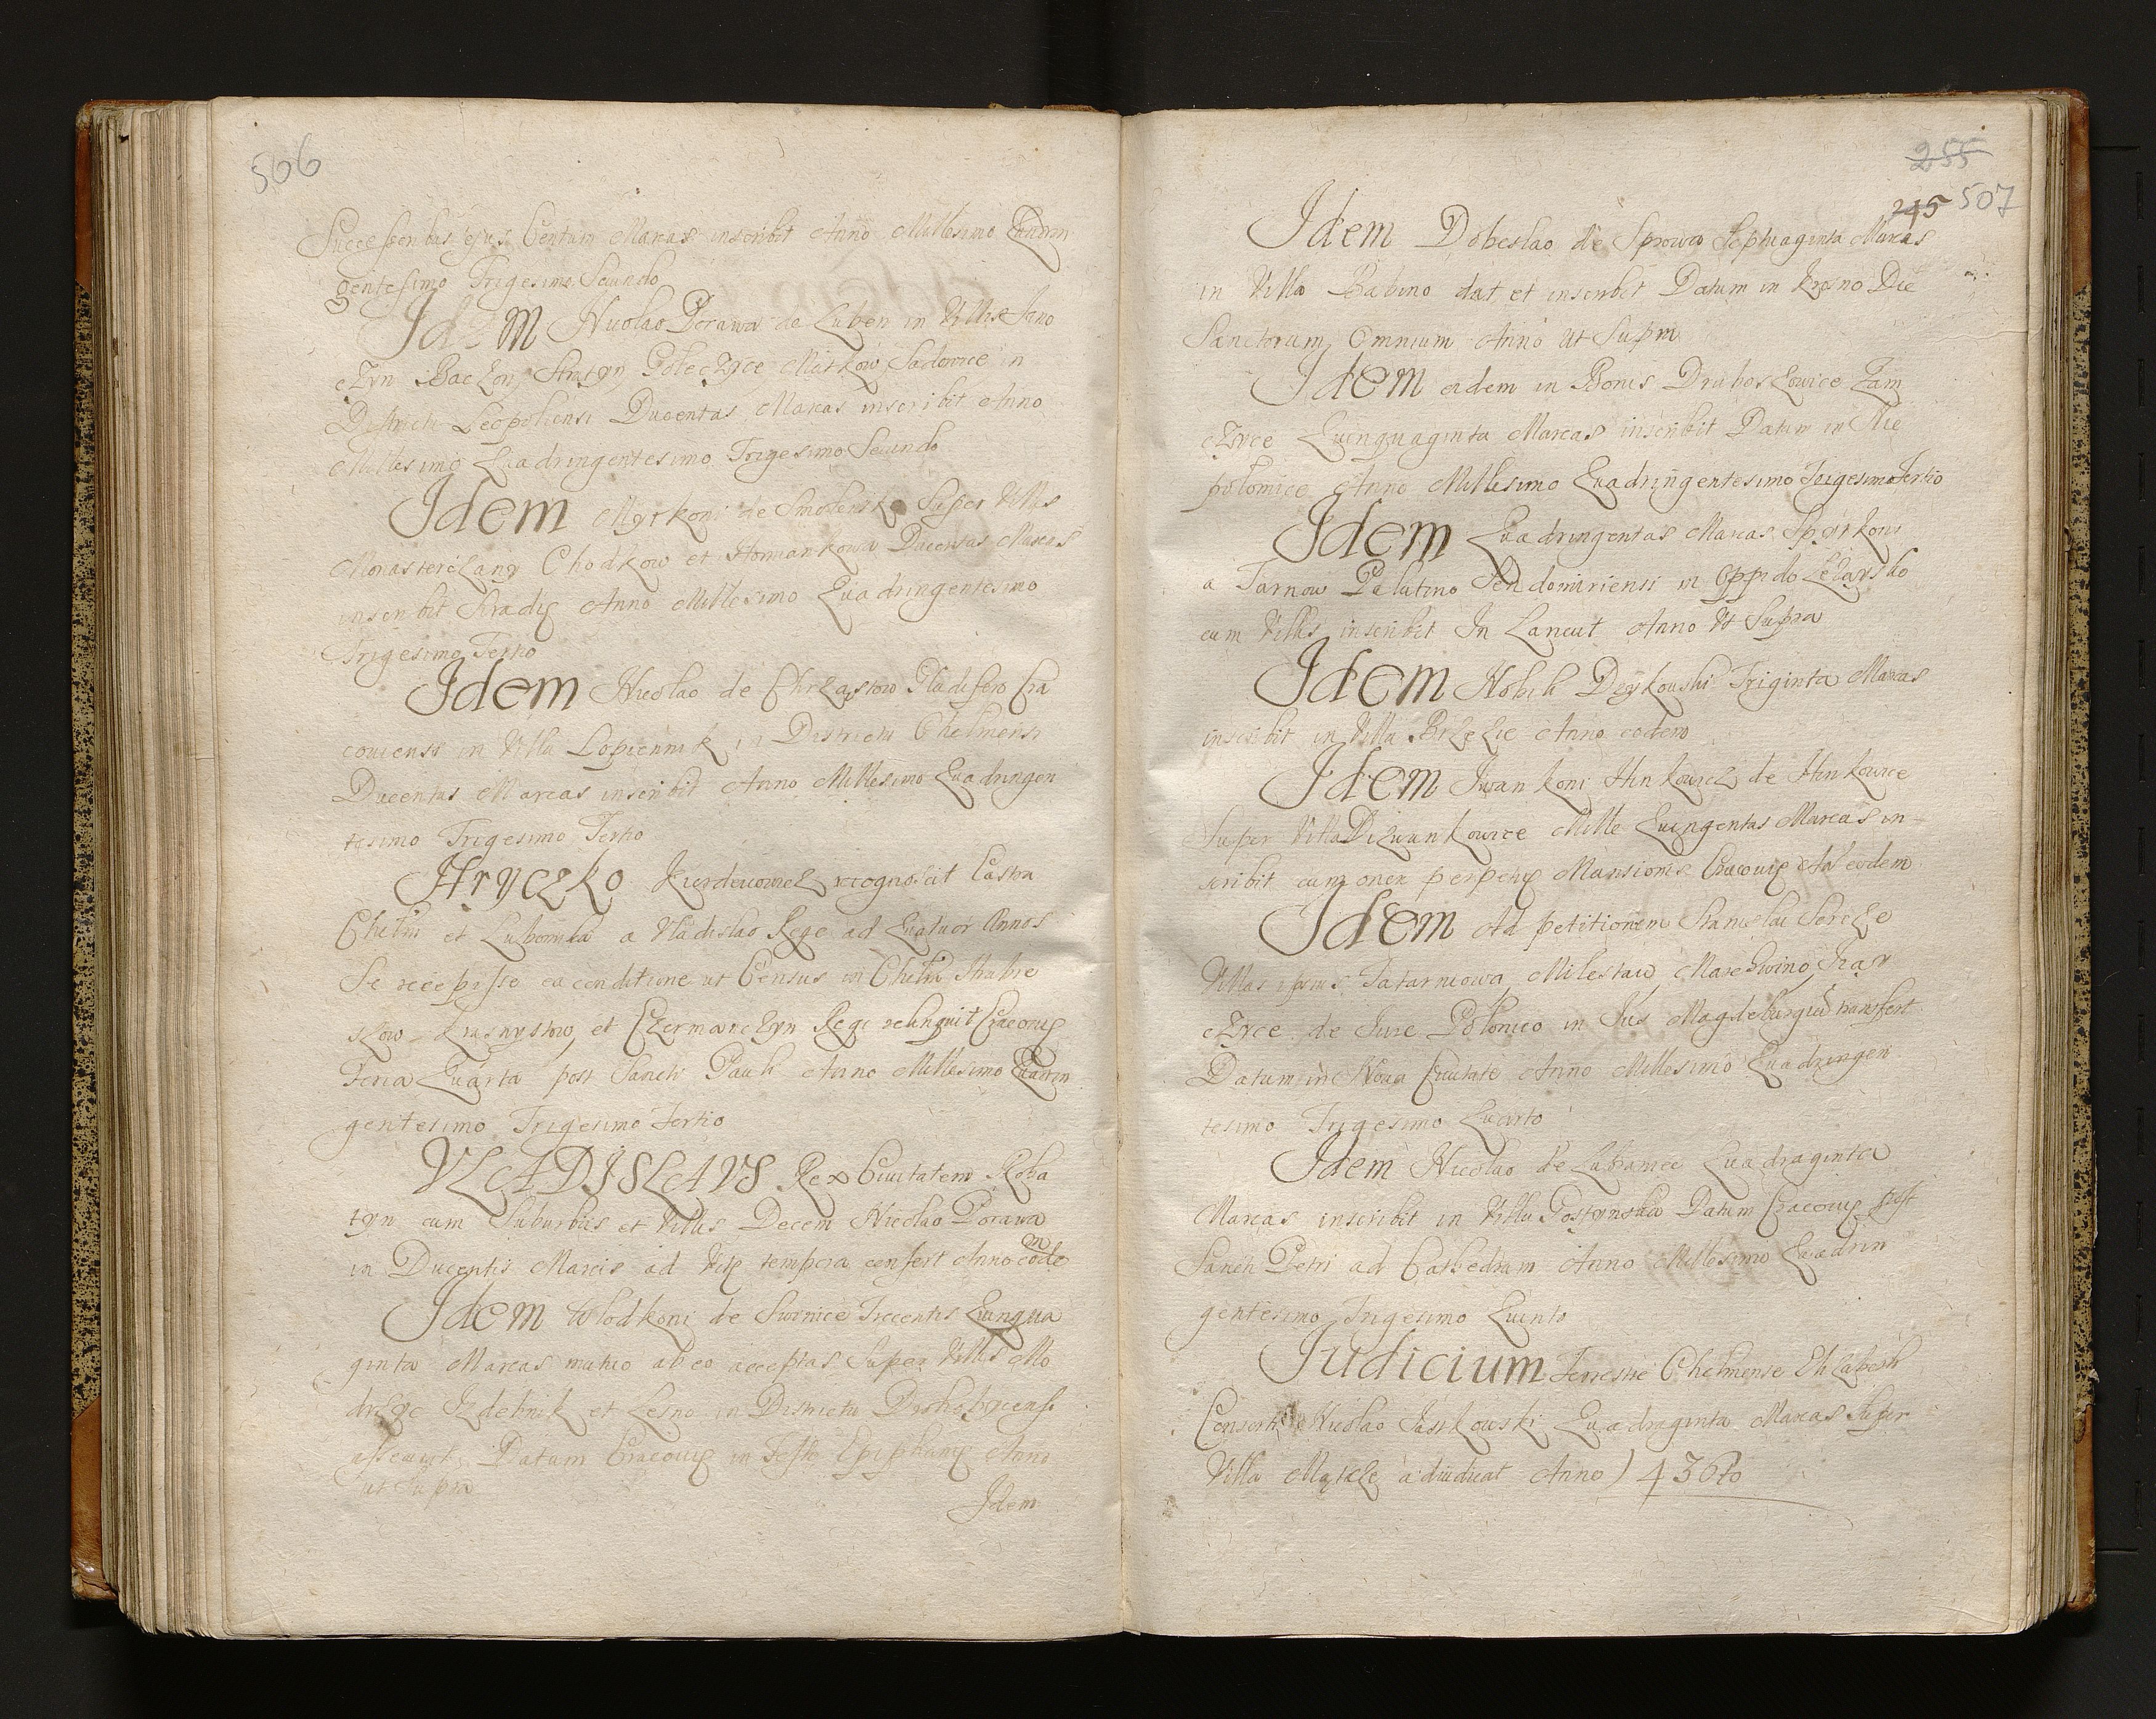 506
Successoribus ejus Centum Marcas inscribit Anno Millesimo Quadrin
gentesimo Trigesimo Secundo
Idem Nicolao Porawa de Luben in Villis
czyn Baczow Stratyn Markow Sadowice in
Districtu Leopoliensi Ducentas Marcas inscribit Anno
Millesimo Quadringentesimo Trigesimo Secundo
Idem Mytkoni de Super Villis
Monasterczany Chodkow et Ducentas Marcas
inscribit Anno Millesimo Quadringentesimo
Trigesimo Tertio
Idem Nicolao de Chrząstow Gladifero Cra
coviensi in Villa Lopiennik in Districtu Chelmensi
Ducentas Marcas inscribit Anno Millesimo Quadringen
tesimo Trigesimo Tertio
Hryczko Kierdeiowicz recognoscit Castra
Chelm et Lubomla a Vladislao Rege ad Quatuor Annos
Se recepisse ea conditione ut Census in Chelm Hrubie
szow Krasnystow et Czermanczyn Regi relinquit Cracovię
Feria Quarta post Sancti Pauli Anno Millesimo Quadrin
gentesimo Trigesimo Tertio
VLADISLAVS Rex Civitatem Roha
tyn cum Suburbiis et Villis Decem Nicolao Porawa
in Ducentis Marcis ad Vitę tempora confert Anno eodem
Idem Wlodkoni de Trecentis Quinqua
ginta Marcas mutuo ab eo acceptas Super Villis Mo
drzyc Izdebnik et Lesno in Districtu
assecurat Datum Cracovię in Festo Epiphanię Anno
ut Supra
Idem
255
245 507
Idem Dobeslao de Sprowa Septuaginta Marcas
in Villa Babino dat et inscribit Datum in Die
Sanctorum Omnium Anno ut Supra
Idem eidem in Bonis Zam
czyce Quinquaginta Marcas inscribit Datum in Nie
polomice Anno Millesimo Quadringentesimo Trigesimo Tertio
Idem Quadringentas Marcas Spytkoni
a Tarnow Palatino Sendomiriensi in Oppido Leżaysko
cum Villis inscribit In Lancut Anno Ut Supra
Idem Nobili Triginta Marcas
inscribit in Villa Brzezie Anno eodem
Idem Iwankoni Hinkowicz de Hinkowce
Super Villa Mille Quingentas Marcas in
scribit cum onere perpetuę Mansionis Cracovię Ao eodem
Idem Ad petitionem Stanislai
Villas ipsius Tatarnowa Milestaw Marchwino Tray
czyce de Iure Polonico in Ius Magdeburgicu transfert
Datum in Nova Civitate Anno Millesimo Quadringen
tesimo Trigesimo Quarto
Idem Nicolao de Quadraginta
Marcas inscribit in Villa Datum Cracovię post
Sancti Petri ad Cathedram Anno Millesimo Quadrin
gentesimo Trigesimo Quinto
Judicium Terrestre Chelmense Elizabeth
Consorti Nicolao Iastkowski Quadraginta Marcas Super
Villa adiudicat Anno 1436to